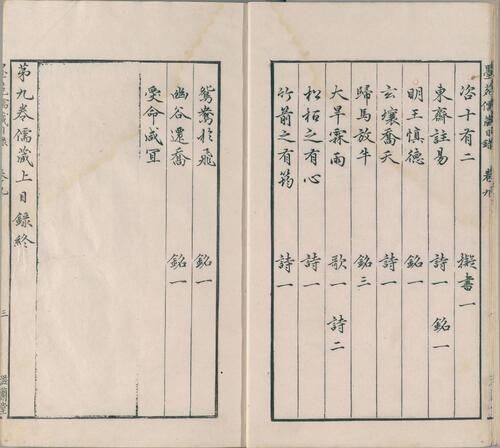 墨苑儒藏目錄 卷九
咨十有二 擬書一
東齋註易 詩一 銘一
明王慎德 銘一
玄壤喬天 詩一
歸馬放牛 銘三
大旱霖雨 歌一 詩二
松柏之有心 詩一
竹箭之有筠 詩一
鴛鴦於飛 銘一
幽谷遷喬 銘一
受命咸冝
第九卷儒藏上目錄終
墨苑儒藏目錄 卷九 三 滋蘭堂